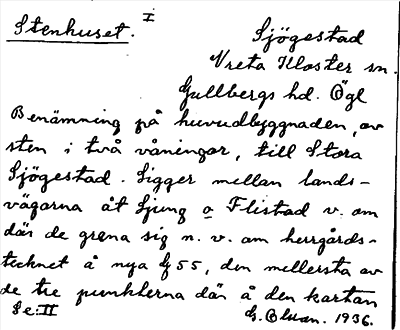 Stenhuset. I
Sjögestad
Vreta Kloster sn.
Gullbergs hd. Ögl
Benämning på huvudbyggnaden, av
sten i två våningar, till Stora
Sjögestad. Ligger mellan lands-
vägarna åt Ljung o Flistad v. om
där de grena sig n. v. om herrgårds-
tecknet å nya G 55, den mellersta av
de tre punkterna där å den kartan
Se: II
1936.